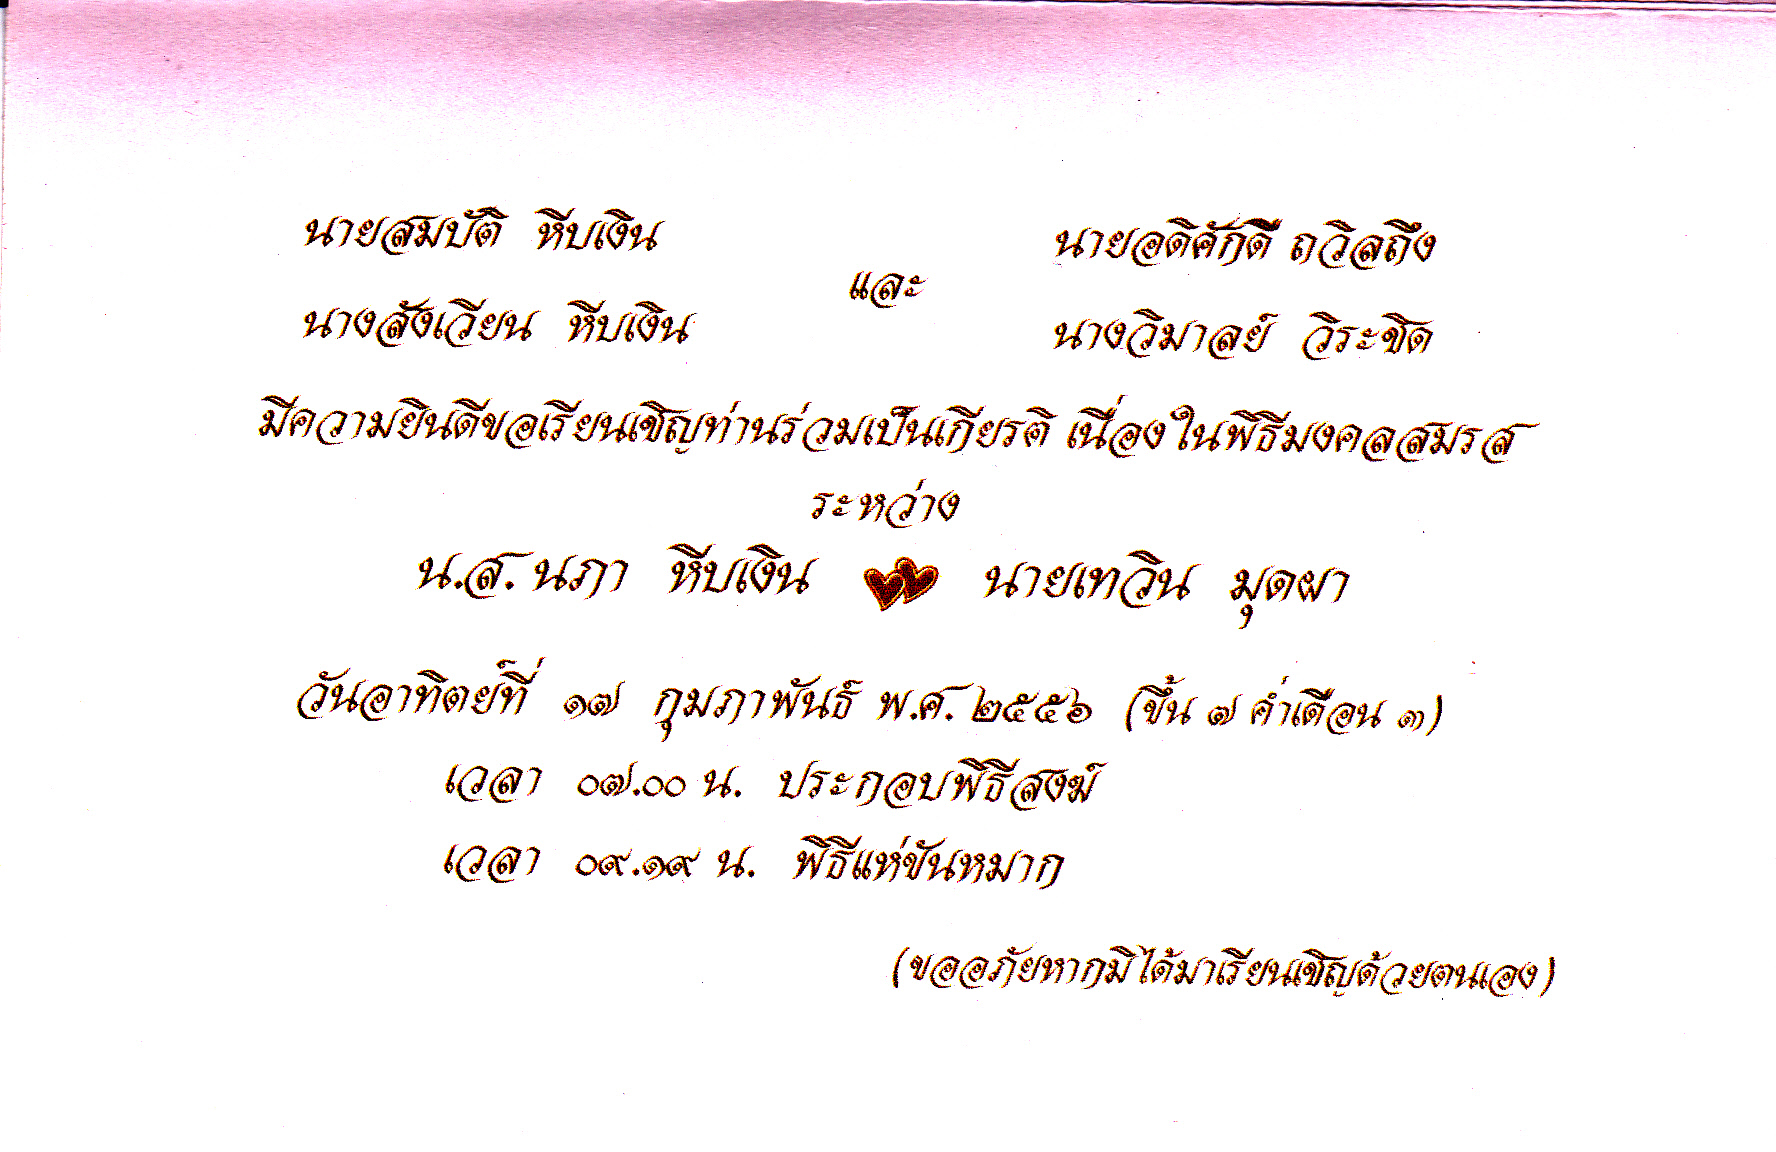 นายสมบัติ หีบเงิน
นางสังเวียน หีบเงิน
และ
นายอดิศักดิ์ ถวิลถึง
นางวิมาลย์ วิระชิด
มีความยินดีขอเรียนเชิญท่านร่วมเป็นเกียรติ เนื่องในพิธีมงคลสมรส
ระหว่าง
น.ส. นภา หีบเงิน นายเทวิน มุดผา
วันอาทิตย์ที่ ๑๗ กุมภาพันธ์ พ.ศ. ๒๕๕๖ (ขึ้น ๗ ค่ำเดือน ๓)
เวลา ๐๗.๐๐ น. ประกอบพิธีสงฆ์
เวลา ๐๙.๑๙ น. พิธีแห่ขันหมาก
(ขออภัยหากมิได้มาเรียนเชิญด้วยตนเอง)